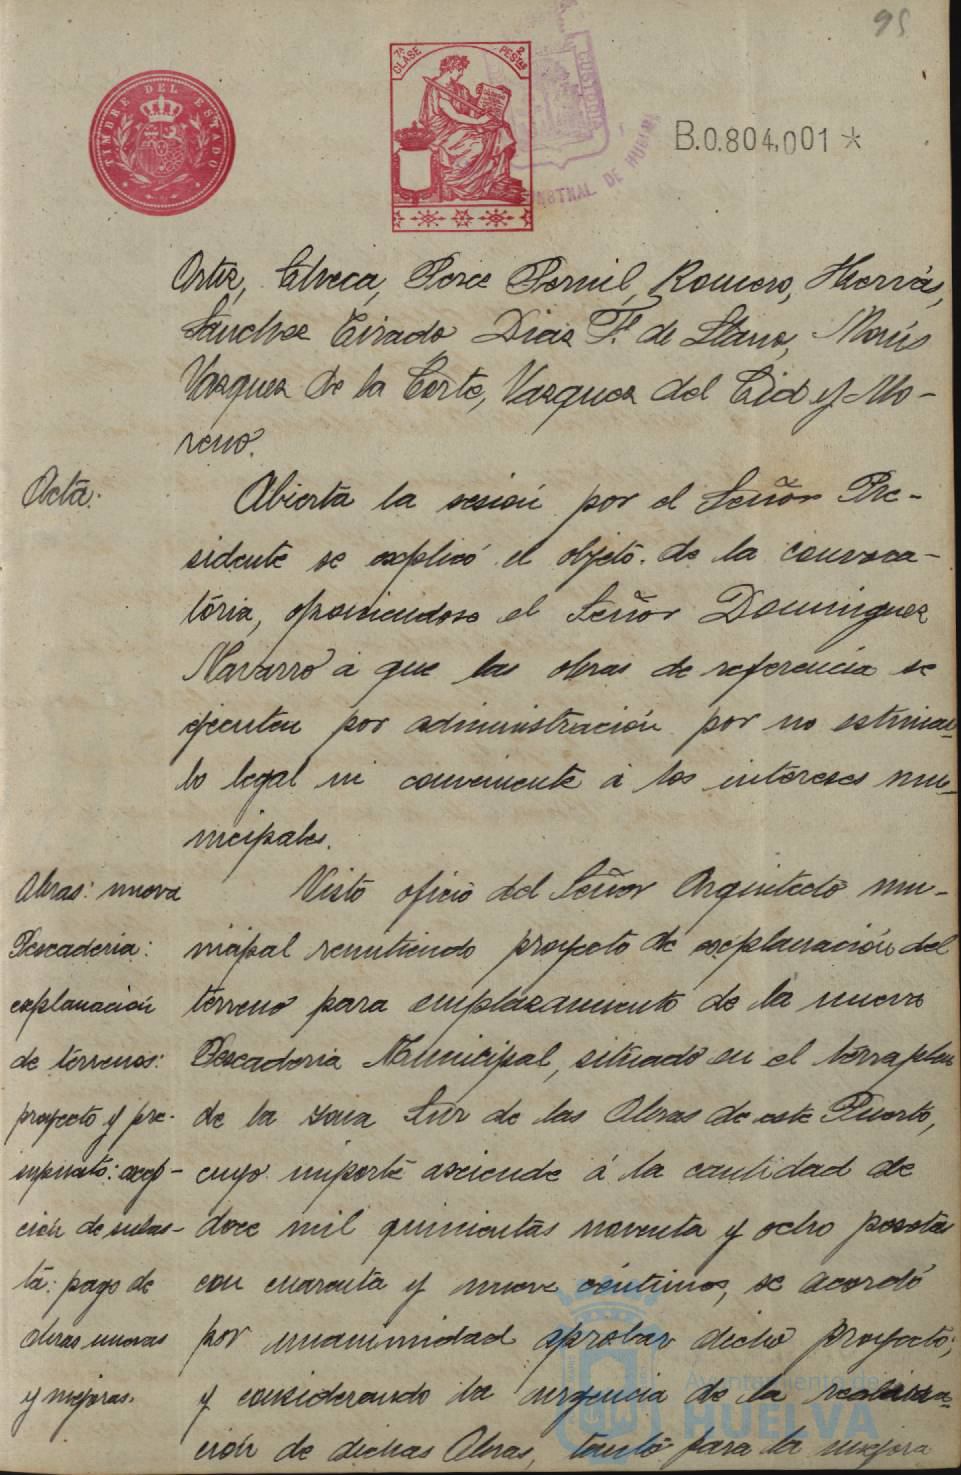 95
TIMBRE DEL ESTADO
7ª CLASE 2 PESTAS
B.0.804,001 *
Ortiz, Checa, Perez Pernil, Romero, Hierrás,
Sánchez Tirado Diaz F. de Llano, Morús
Vazquez de la Corte, Vazquez del Cid y Mo-
reno.
Acta:
Abierta la sesión por el Señor Pre-
sidente se explicó el objeto de la convoca-
tória, oponiendose el Señor Dominguez
Navarro á que las obras de referencia se
ejecuten por administración por no estimar-
lo legal ni conveniente á los intereses mu-
nicipales.
Obras: nueva
Pescaderia:
explanación
de terrenos:
proyecto y pre-
supuesto: excep-
ción de subas-
ta: pago de
obras nuevas
y mejoras.
Visto oficio del Señor Arquitecto mu-
nicipal remitiendo proyecto de explanación del
terreno para emplazamiento de la nueva
Pescaderia Municipal, situado en el terraplen
de la zona Sur de las Obras de este Puerto,
cuyo importe asciende á la cantidad de
doce mil quinientas noventa y ocho pesetas
con cuarenta y nueve céntimos, se acordó
por unanimidad aprobar dicho proyecto;
y considerando la urgencia de la realiza-
ción de dichas Obras, tanto para la mejora
Ayuntamiento de
HUELVA